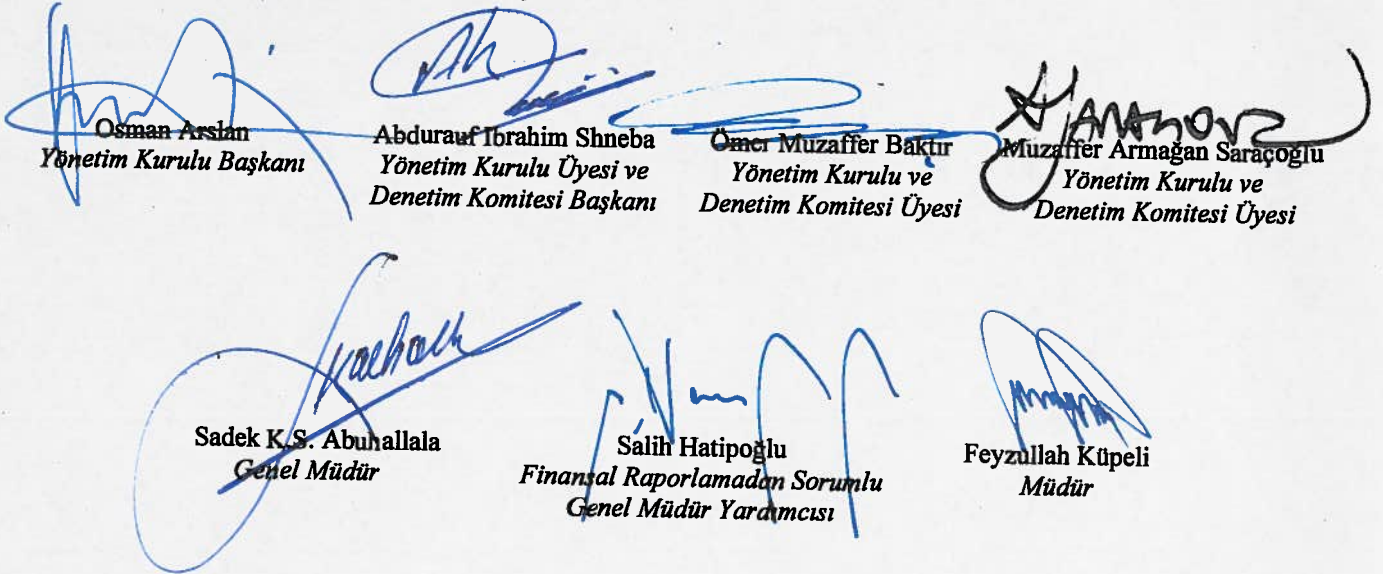 Osman Arslan
Yönetim Kurulu Başkanı
Abdurauf Ibrahim Shneba
Yönetim Kurulu Üyesi ve
Denetim Komitesi Başkanı
Ömer Muzaffer Baktır
Yönetim Kurulu ve
Denetim Komitesi Üyesi
Muzaffer Armağan Saraçoğlu
Yönetim Kurulu ve
Denetim Komitesi Üyesi
Sadek K.S. Abuhallala
Genel Müdür
Salih Hatipoğlu
Finansal Raporlamadan Sorumlu
Genel Müdür Yardımcısı
Feyzullah Küpeli
Müdür